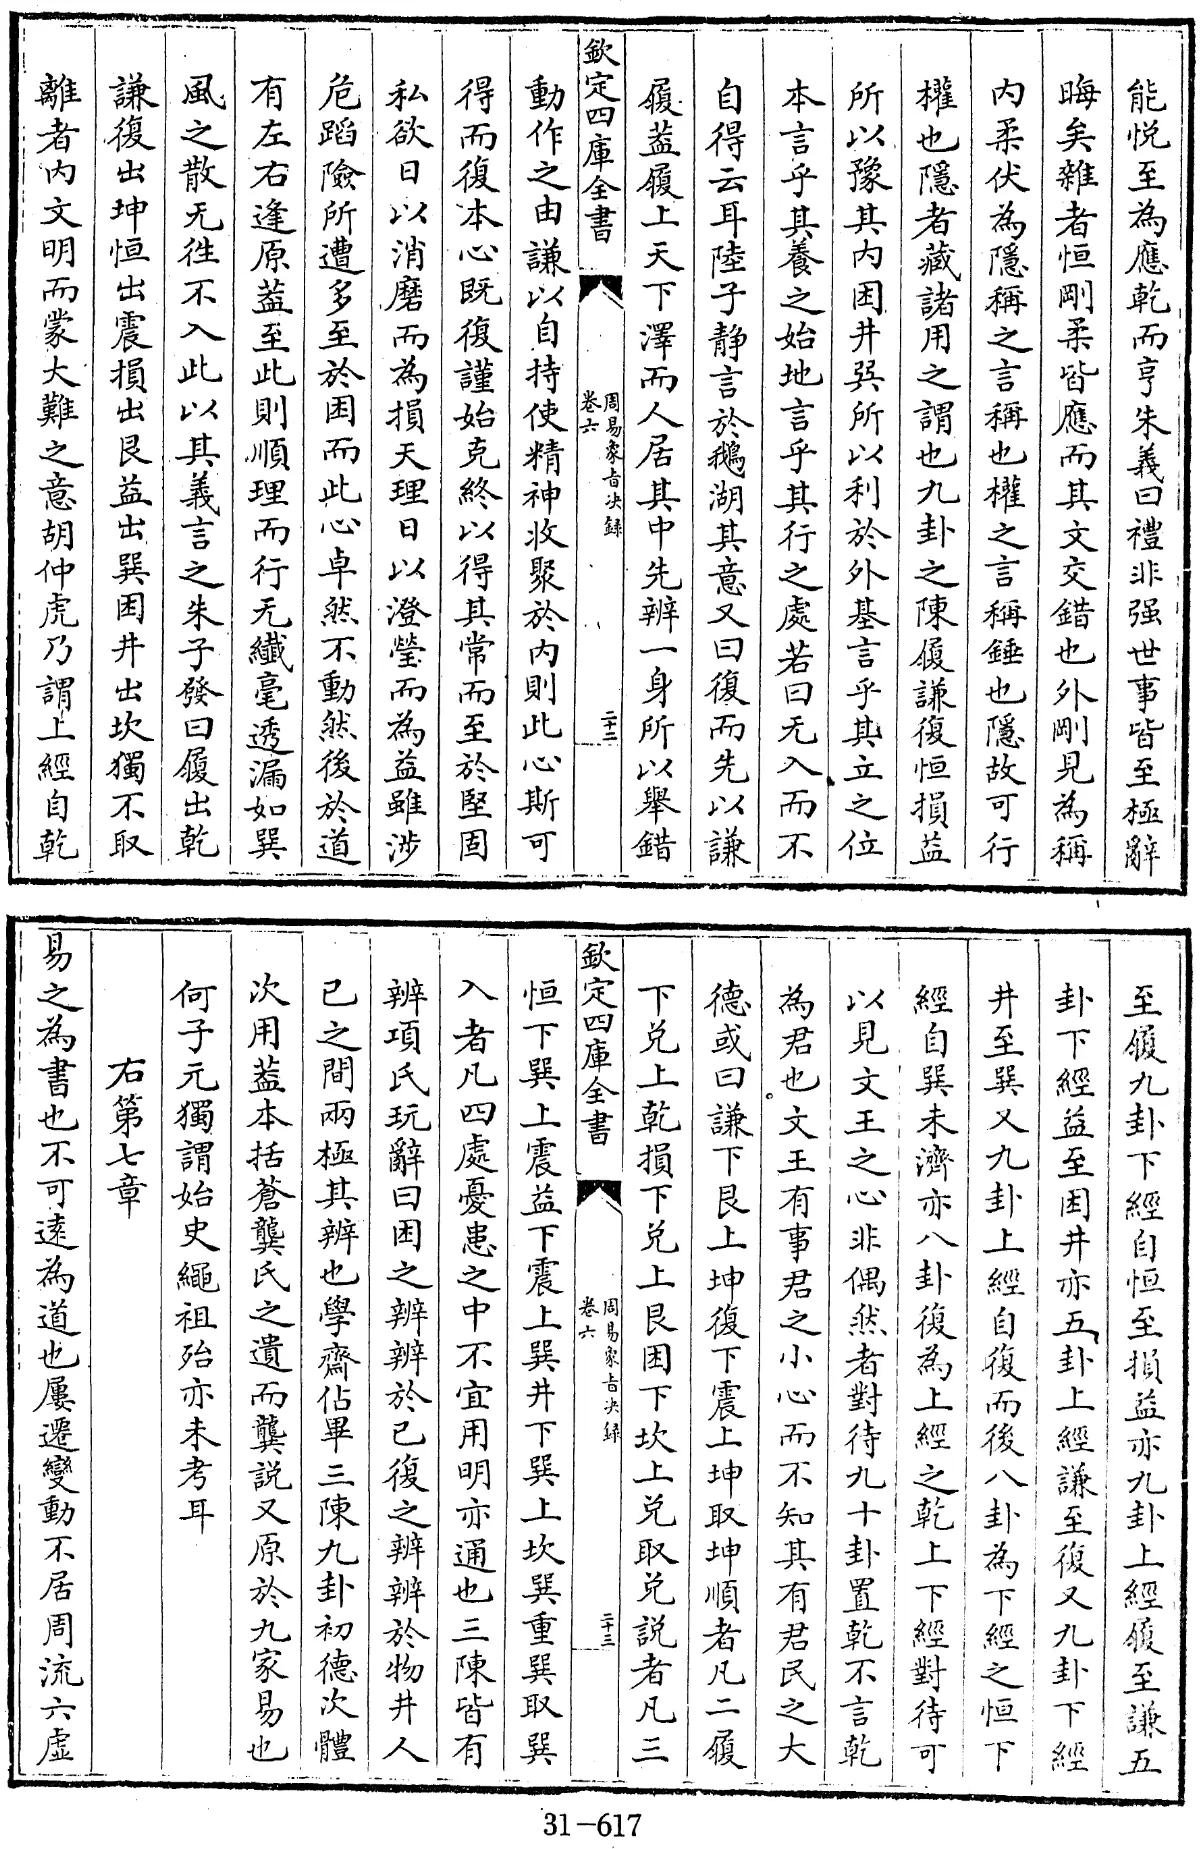 能悦至為應乾而亨朱義曰禮非强世事皆至極辭
晦矣雜者恒剛柔皆應而其文交錯也外剛見為稱
内柔伏為隱稱之言稱也權之言稱錘也隱故可行
權也隱者藏諸用之謂也九卦之陳履謙復恒損益
所以豫其内困井巽所以利於外基言乎其立之位
本言乎其養之始地言乎其行之處若曰无入而不
自得云耳陸子靜言於鵝湖其意又曰復而先以謙
履蓋履上天下澤而人居其中先辨一身所以舉錯
欽定四庫全書
周易象旨決録
卷六
二十二
動作之由謙以自持使精神收聚於内則此心斯可
得而復本心既復謹始克終以得其常而至於堅固
私欲日以消磨而為損天理日以澄瑩而為益雖涉
危蹈險所遭多至於困而此心卓然不動然後於道
有左右逢原蓋至此則順理而行无纖毫透漏如巽
風之散无徃不入此以其義言之朱子發曰履出乾
謙復出坤恒出震損出艮益出巽困井出坎獨不取
離者内文明而蒙大難之意胡仲虎乃謂上經自乾
至履九卦下經自恒至損益亦九卦上經履至謙五
卦下經益至困井亦五卦上經謙至復又九卦下經
井至巽又九卦上經自復而後八卦為下經之恒下
經自巽未濟亦八卦復為上經之乾上下經對待可
以見文王之心非偶然者對待九十卦置乾不言乾
為君也文王有事君之小心而不知其有君民之大
德或曰謙下艮上坤復下震上坤取坤順者凡二履
下兑上乾損下兑上艮困下坎上兑取兑説者凡三
欽定四庫全書
周易象旨決録
卷六
二十三
恒下巽上震益下震上巽井下巽上坎巽重巽取巽
入者凡四處憂患之中不宜用明亦通也三陳皆有
辨項氏玩辭曰困之辨辨於已復之辨辨於物井人
已之間兩極其辨也學齋佔畢三陳九卦初德次體
次用蓋本括蒼龔氏之遺而龔説又原於九家易也
何子元獨謂始史繩祖殆亦未考耳
右第七章
易之為書也不可逺為道也屢遷變動不居周流六虚
31-617